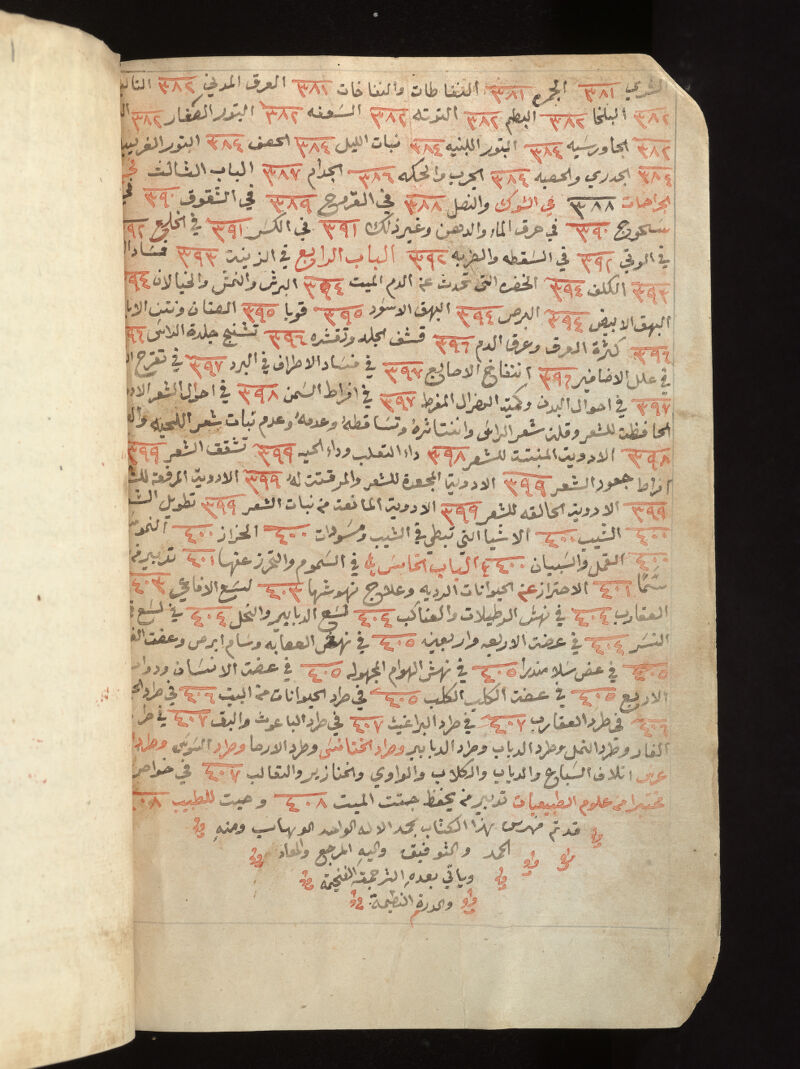 الشري ٣٨١ الجمره ٣٨١ النفاطات والنفاخات ٣٨١ العرق المدني ٣٨٢
٣٨٢ البلخا ٣٨٢ البطم ٣٨٢ التوته ٣٨٢ السعفه ٣٨٢ البثور الصغار ٣٨٢
٣٨٢ الجاورسيه ٣٨٤ البثور اللبنيه ٣٨٤ نبات الليل ٣٨٤ الحصف ٣٨٤ البثور الغريبه
٣٨٤ الجدري والحصبه ٣٨٤ الجرب والحكه ٣٨٦ الجدام ٣٨٧ الباب الثالث في
الجراحات ٣٨٨ في الشوك والنصل ٣٨٨ في القروح ٣٨٩ في الشقوق ٣٩٠ في
سحوج ٣٩٠ في حرق الماء والدهن وغير ذلك ٣٩١ في الكسر ٣٩١ في الخلع ٣٩٢
في الوثي ٣٩٢ في السقطه والضربه ٣٩٢ الباب الرابع في الزينة ٣٩٣ فساد
٣٩٣ الكلف ٣٩٤ الخضره التي تحدث عن الدم الميت ٣٩٤ البرش والنمش والخيلان ٣٩٤
البهق الابيض ٣٩٤ البرص ٣٩٤ البهق الاسود ٣٩٥ قوبا ٣٩٥ الصنان ونتن
٣٩٦ كثرة العرق وعرق الدم ٣٩٦ قشف الجلد وتقشره ٣٩٦ تشنج جلدة الراس ٣٩٦
في علل الاضافير ٣٩٦ انتفاخ الاصابع ٣٩٧ في فساد الاطراف في البرد ٣٩٧ في تقرح
٣٩٧ في احوال البدن وكمية الهزال المفرط ٣٩٧ في افراط السمن ٣٩٨ في احوال الشعر
الحافظة للشعر وقلة شعر الراس وانتثاره وتساقطه وعدمه وعدم نبات شعر اللحيه
٣٩٨ الادوية المنبتة للشعر ٣٩٨ داء الثعلب وداء الحيه ٣٩٩ تشقق الشعر ٣٩٩
افراط جعود الشعر ٣٩٩ الادوية المجعدة للشعر والمرققة له ٣٩٩ الادوية
٣٩٩ الادوية الحالقه للشعر ٣٩٩ الادوية المانعة من نبات الشعر ٣٩٩ تطويل
٤٠٠ الشيب ٤٠٠ الاشيا التي تبطي في الشيب ومسودات ٤٠٠ الحزاز ٤٠٠
٤٠٠ القمل والسبيان ٤٠٠ الباب الخامس في السموم والتحرز عنها ٤٠١ تدبير من
سمًا ٤٠١ الاحتراز عن الحيوانات الرديه وعلاج نهوشها ٤٠٣ لسع الافاعي ٤٠٣
العقارب ٤٠٤ في نهش الرطيلات والعناكب ٤٠٤ لسع الدبابير والنحل ٤٠٤ في لسع
النسر ٤٠٤ في عضة الاربعه واربعين ٤٠٥ في نهش العضايه وسام ابرص وعضت
٤٠٥ في عض سلامندرا ٤٠٥ في نهش الهوام المجهوله ٤٠٥ في عضة الانسان ودوات
الاربع ٤٠٥ في عضة الكلب الكلب ٤٠٥ في طرد الحيوانات من البيت ٤٠٦ في طرد
٤٠٦ في طرد العقارب ٤٠٧ في طرد البراغيث ٤٠٧ في طرد الباعوث والبق ٤٠٧ في طرد
الفار وطرد النمل وطرد الدباب وطرد الدبابير وطرد الخنافس وطرد الارضا وطرد السوس وطرد
عرس اتلاف السباع والدياب والكلاب والواوي والخنازير والثعالب ٤٠٧ في خواص
مختبرا من علوم الطبيعيات تدبير من يحفظ جثث الميت ٤٠٨ وصيت للطبيب ٤٠٨
قد تم فهرس هذا الكتاب بمجد الاله الواحد الوهاب ومنه
الحمد والتوفيق واليه المرجع والمعاد
وياتي بعده الترجمة الفخيمة
والدرة النظيمة